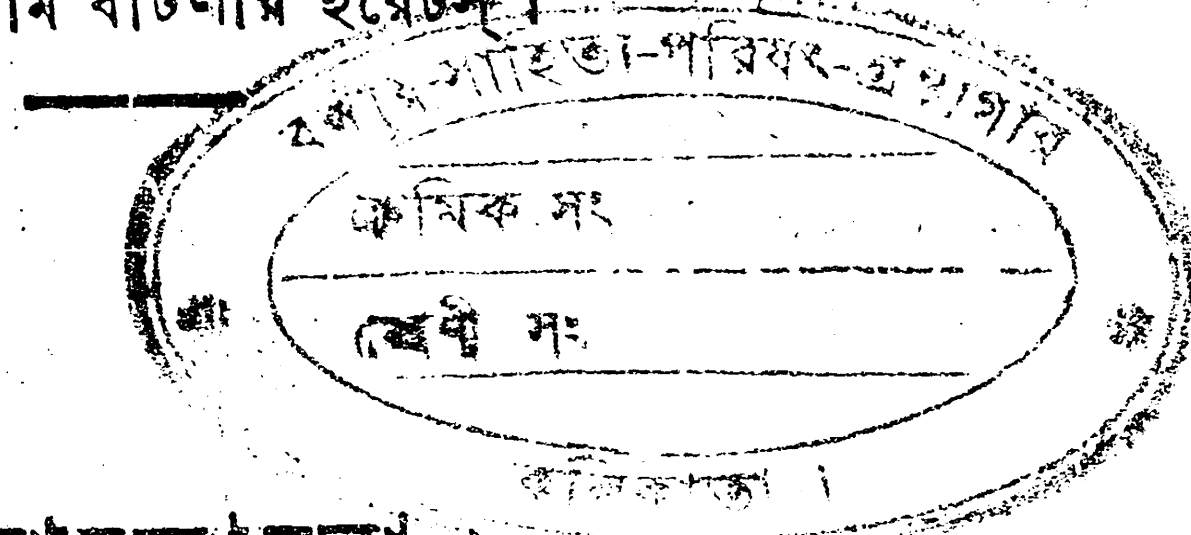 বাটলার ইয়েটস্।
বঙ্গীয়-সাহিত্য-পরিষৎ-গ্রন্থাগার
ক্রমিক সং
শ্রেণী সং
কলিকাতা।